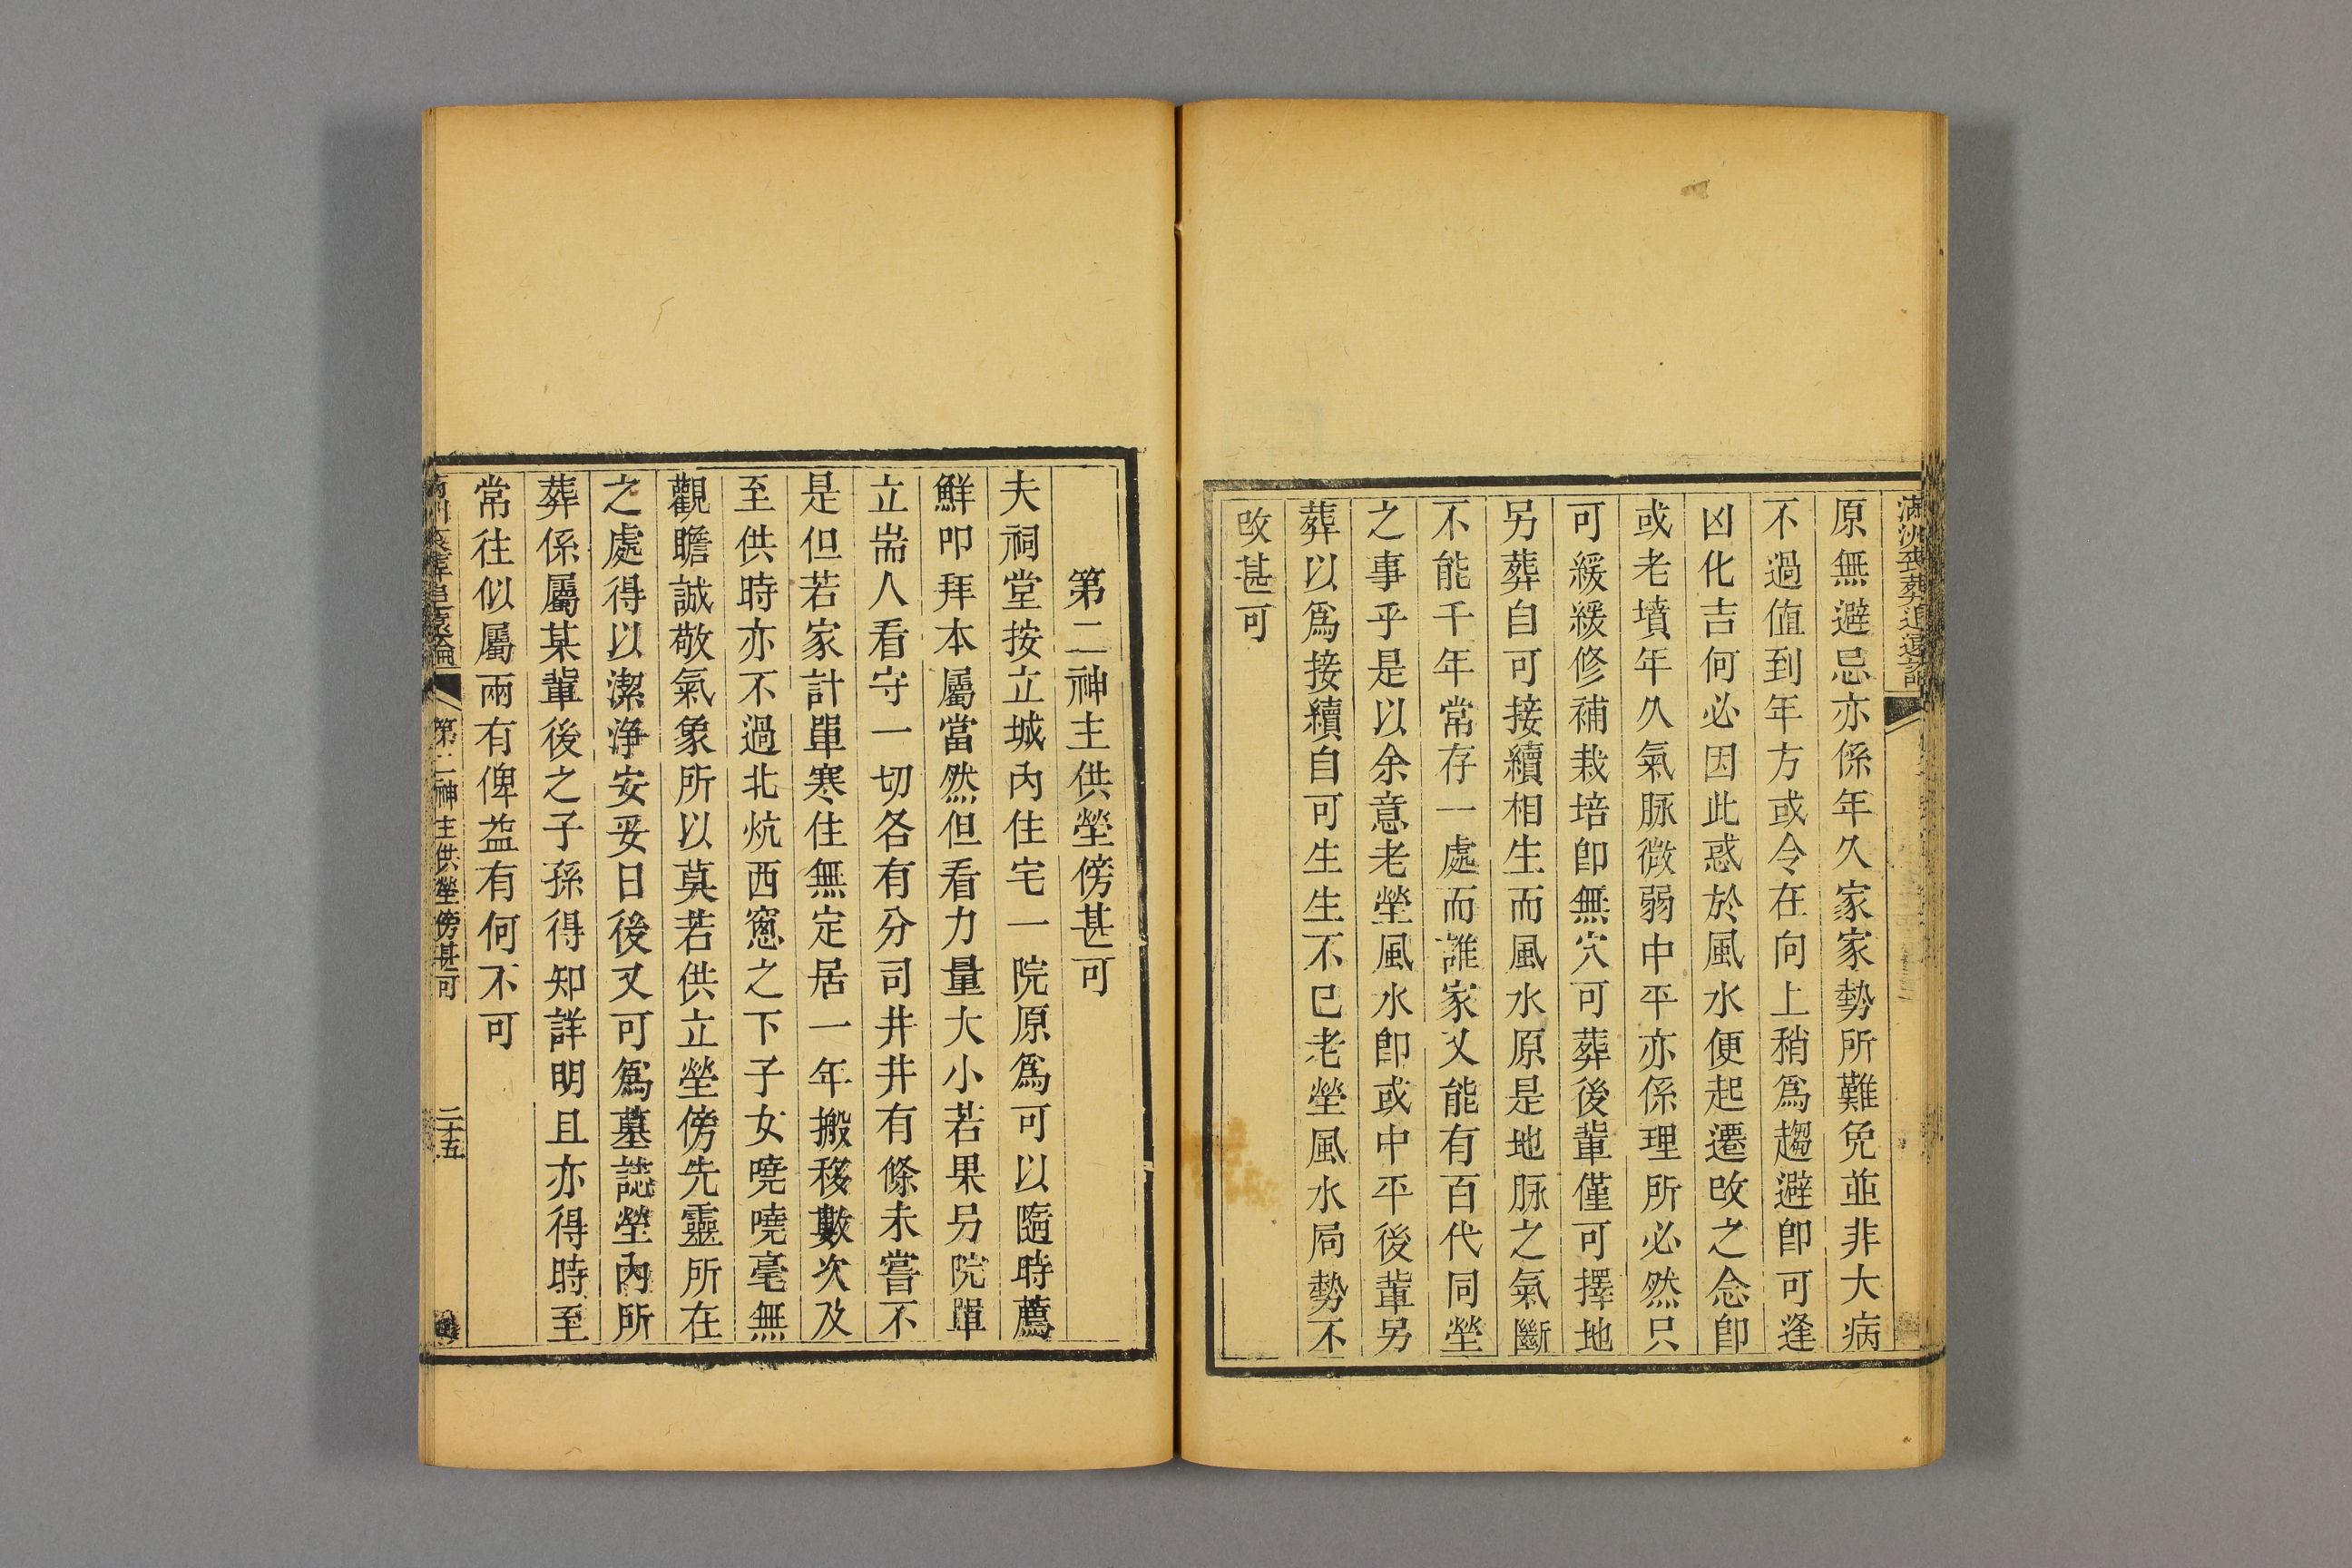 滿洲喪葬追遠論
原無避忌亦係年久家家勢所難免並非大病
不過值到年方或令在向上稍爲趨避卽可逢
凶化吉何必因此惑於風水便起遷改之念卽
或老墳年久氣脉微弱中平亦係理所必然只
可緩緩修補栽培卽無穴可葬後軰僅可擇地
另葬自可接續相生而風水原是地脉之氣斷
不能千年常存一處而誰家又能有百代同塋
之事乎是以余意老塋風水卽或中平後軰另
葬以爲接續自可生生不已老塋風水局勢不
改甚可
第二神主供塋傍甚可
夫祠堂按立城內住宅一院原爲可以隨時薦
鮮叩拜本屬當然但看力量大小若果另院單
立耑人看守一切各有分司井井有條未嘗不
是但若家計單寒住無定居一年搬移數次及
至供時亦不過北炕西窻之下子女嘵嘵毫無
觀瞻誠敬氣象所以莫若供立塋傍先靈所在
之處得以潔淨安妥日後又可爲墓誌塋內所
葬係屬某軰後之子孫得知詳明且亦得時至
常往似屬兩有俾益有何不可
滿洲喪葬追遠論
第二神主供塋傍甚可
二十五